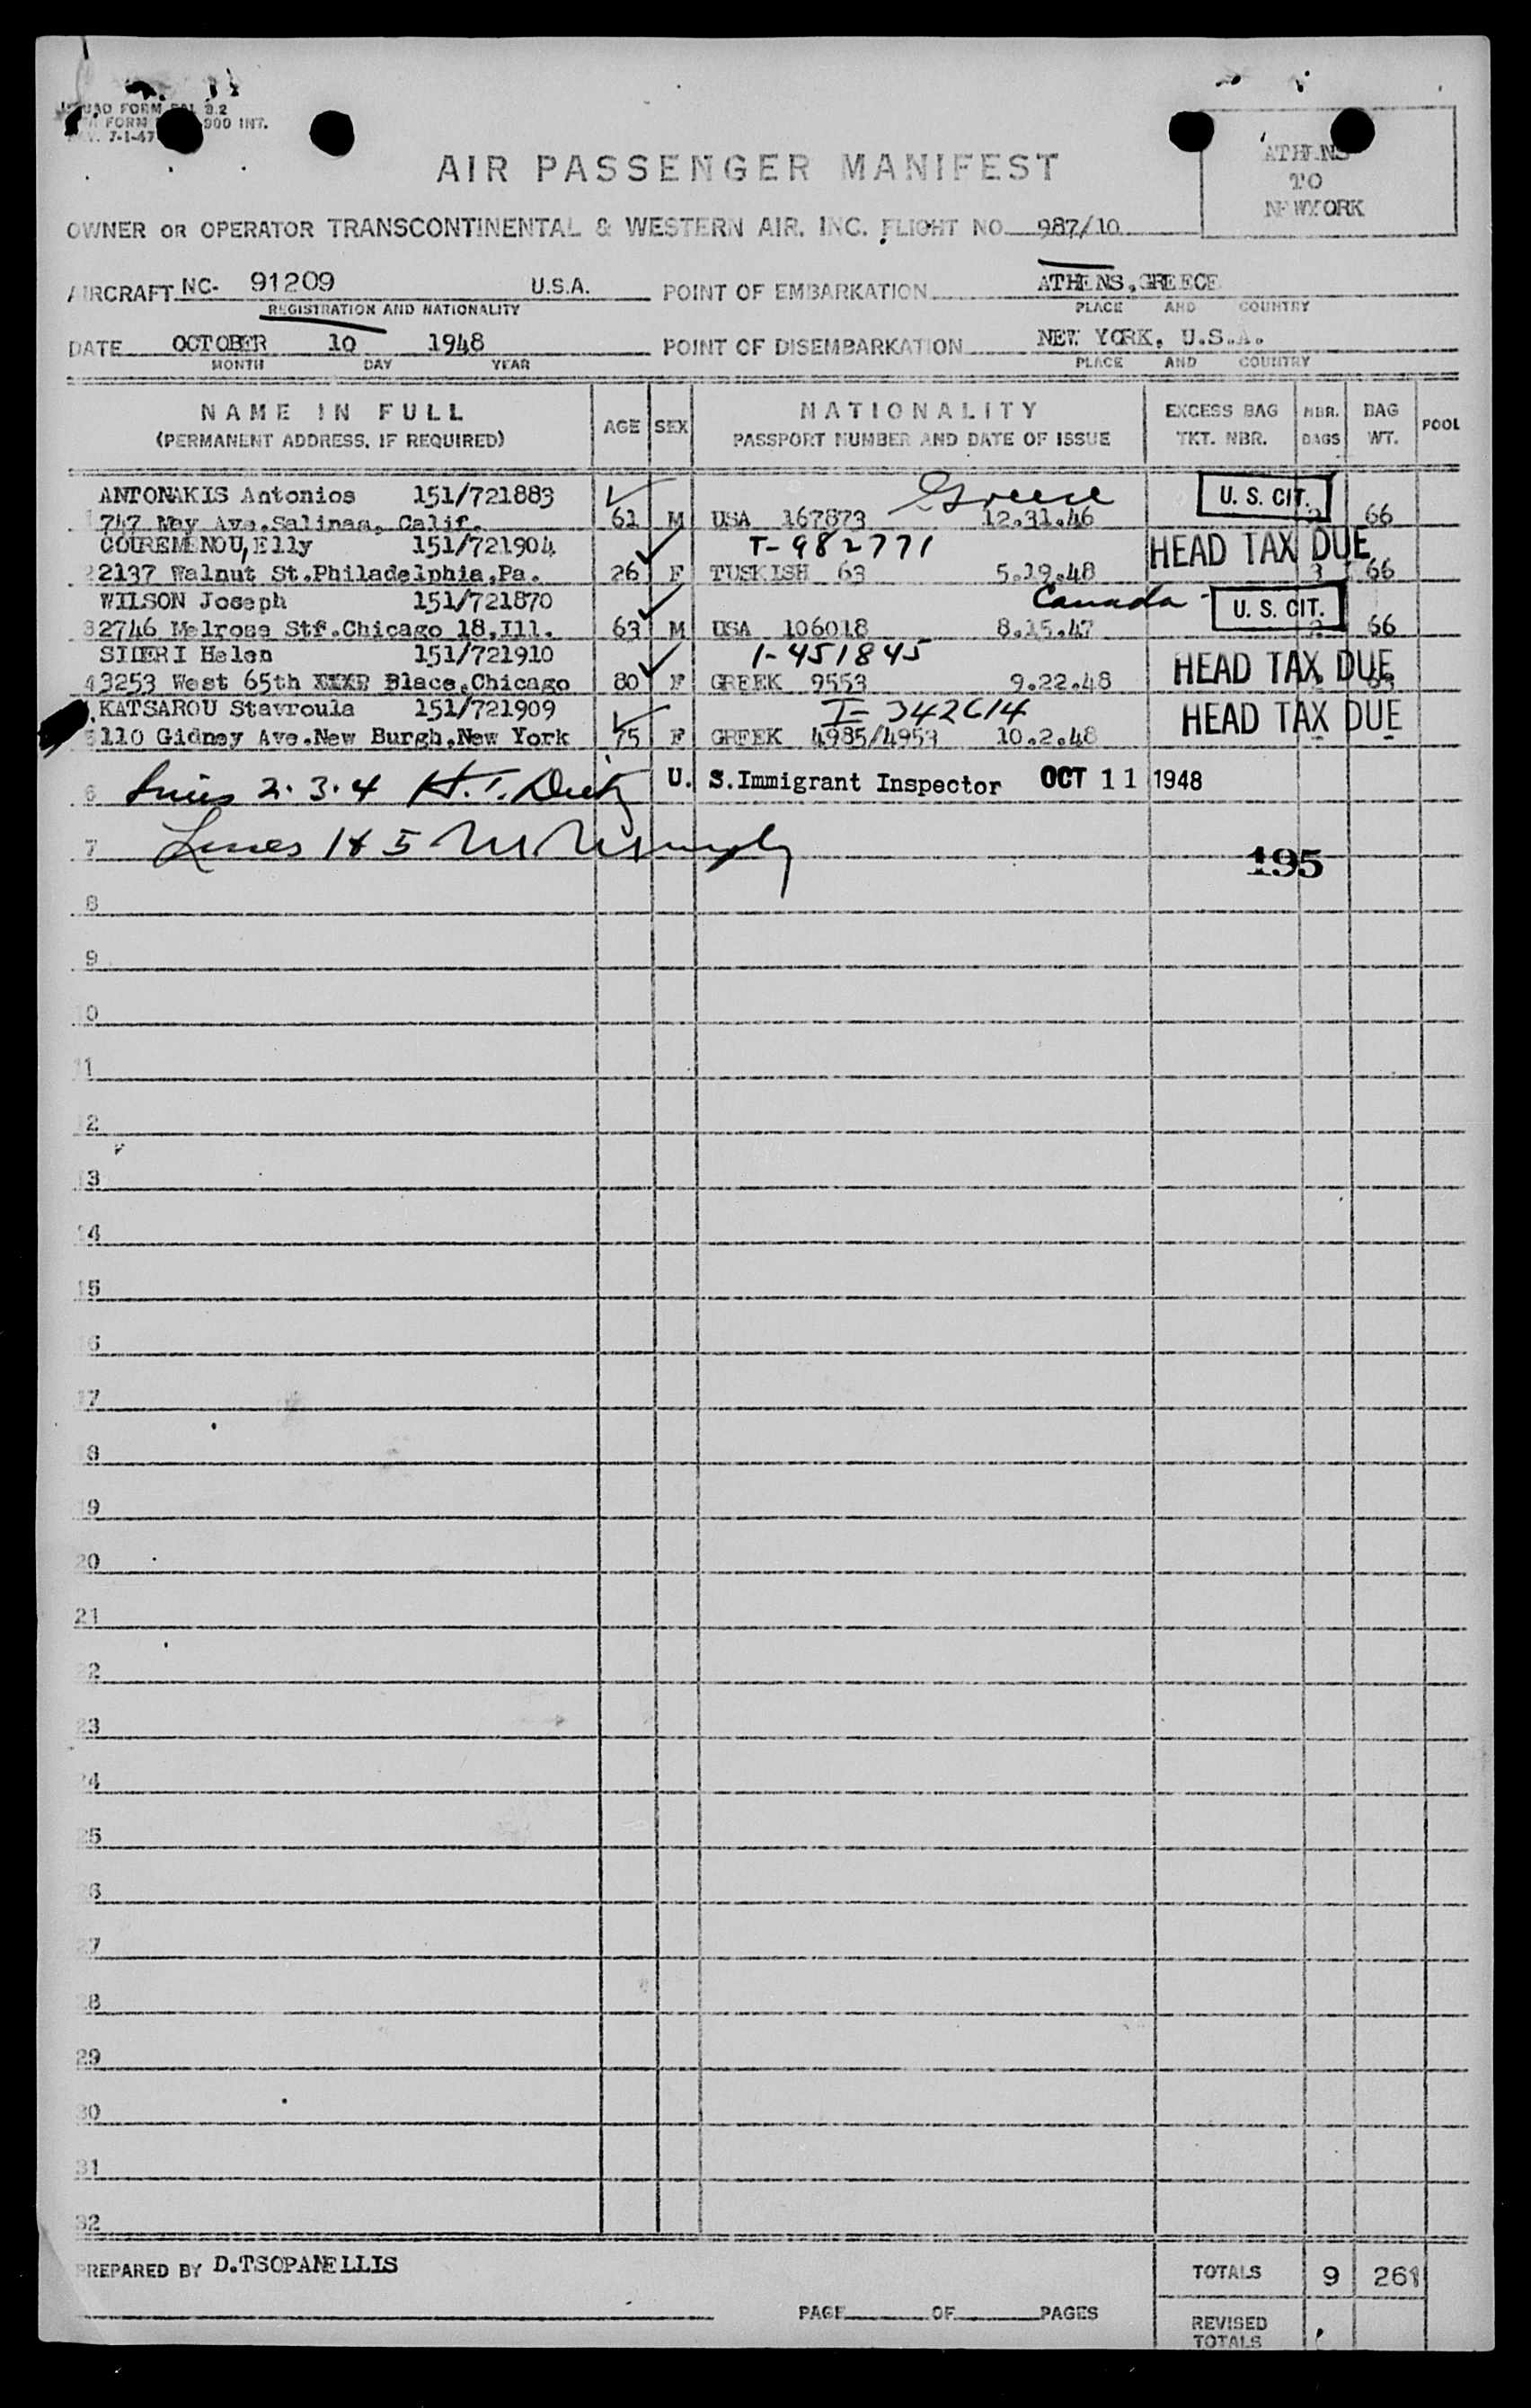 FORM 3.2
FORM 900 INT.
7-1-47
ATHENS
TO
NEWYORK
AIR PASSENGER MANIFEST
OWNER OR OPERATOR TRANSCONTINENTAL & WESTERN AIR, INC. FLIGHT NO. 987/10
AIRCRAFT NC- 91209 U.S.A. POINT OF EMBARKATION ATHENS, GREECE
REGISTRATION AND NATIONALITY PLACE AND COUNTRY
DATE OCTOBER 10 1948 POINT OF DISEMBARKATION NEW YORK, U.S.A.
MONTH DAY YEAR PLACE AND COUNTRY
NAME IN FULL AGE SEX NATIONALITY EXCESS BAG NBR. BAG POOL
(PERMANENT ADDRESS, IF REQUIRED) PASSPORT NUMBER AND DATE OF ISSUE TKT. NBR. BAGS WT.
ANTONAKIS Antonios 151/721883 Greece U. S. CIT.
1 747 May Ave.Salinas, Calif. 61 M USA 167873 12.31.46 66
COUREMENOU, Elly 151/721904 T-982771 HEAD TAX DUE
2 2137 Walnut St.Philadelphia,Pa. 26 F TUSKISH 63 5.19.48 3 66
WILSON Joseph 151/721870 Canada - U. S. CIT.
3 2746 Melrose Str.Chicago 18,Ill. 63 M USA 106018 8.15.47 2 66
Helen 151/721910 1-451845 HEAD TAX DUE
4 3253 West 65th Blace,Chicago 80 F GREEK 9553 9.22.48
KATSAROU Stavroula 151/721909 I- 342614 HEAD TAX DUE
5 110 Gidney Ave.New Burgh,New York 75 F GREEK 4985/4953 10.2.48
6 Lines 2.3.4 H.T. U. S.Immigrant Inspector OCT 11 1948
7 Lines 1 & 5
195
8
9
10
11
12
13
14
15
16
17
18
19
20
21
22
23
24
25
26
27
28
29
30
31
32
PREPARED BY D.TSOPANELLIS TOTALS 9 261
PAGE OF PAGES REVISED
TOTALS